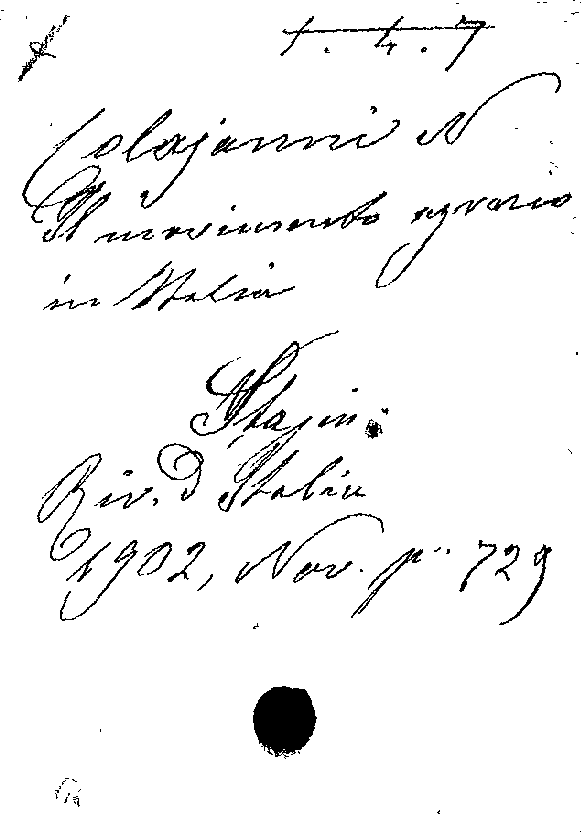 1. 4. 7
Colajanni N
Il movimento agrario
in Italia
Riv. d Italia
1902, Nov. p. 729